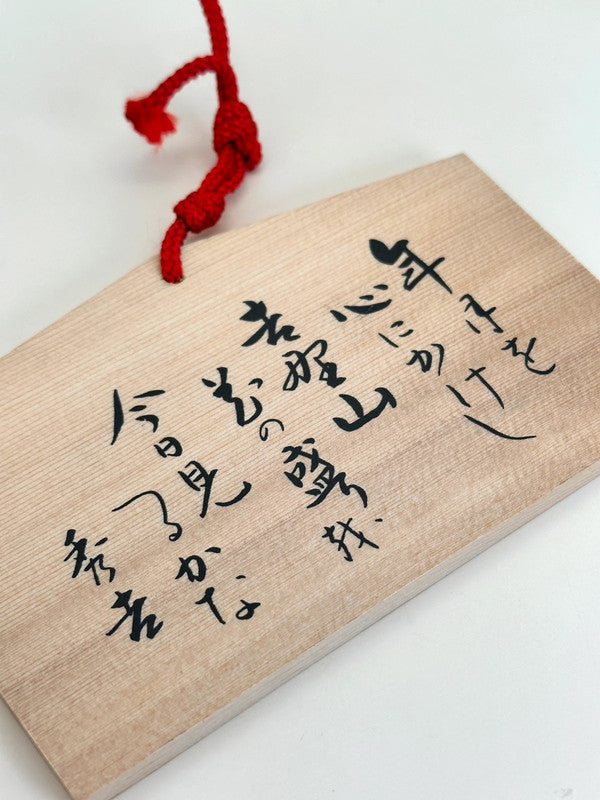 年月を
心にかけし
吉野山
花の盛り越
今日見
つるかな
秀吉